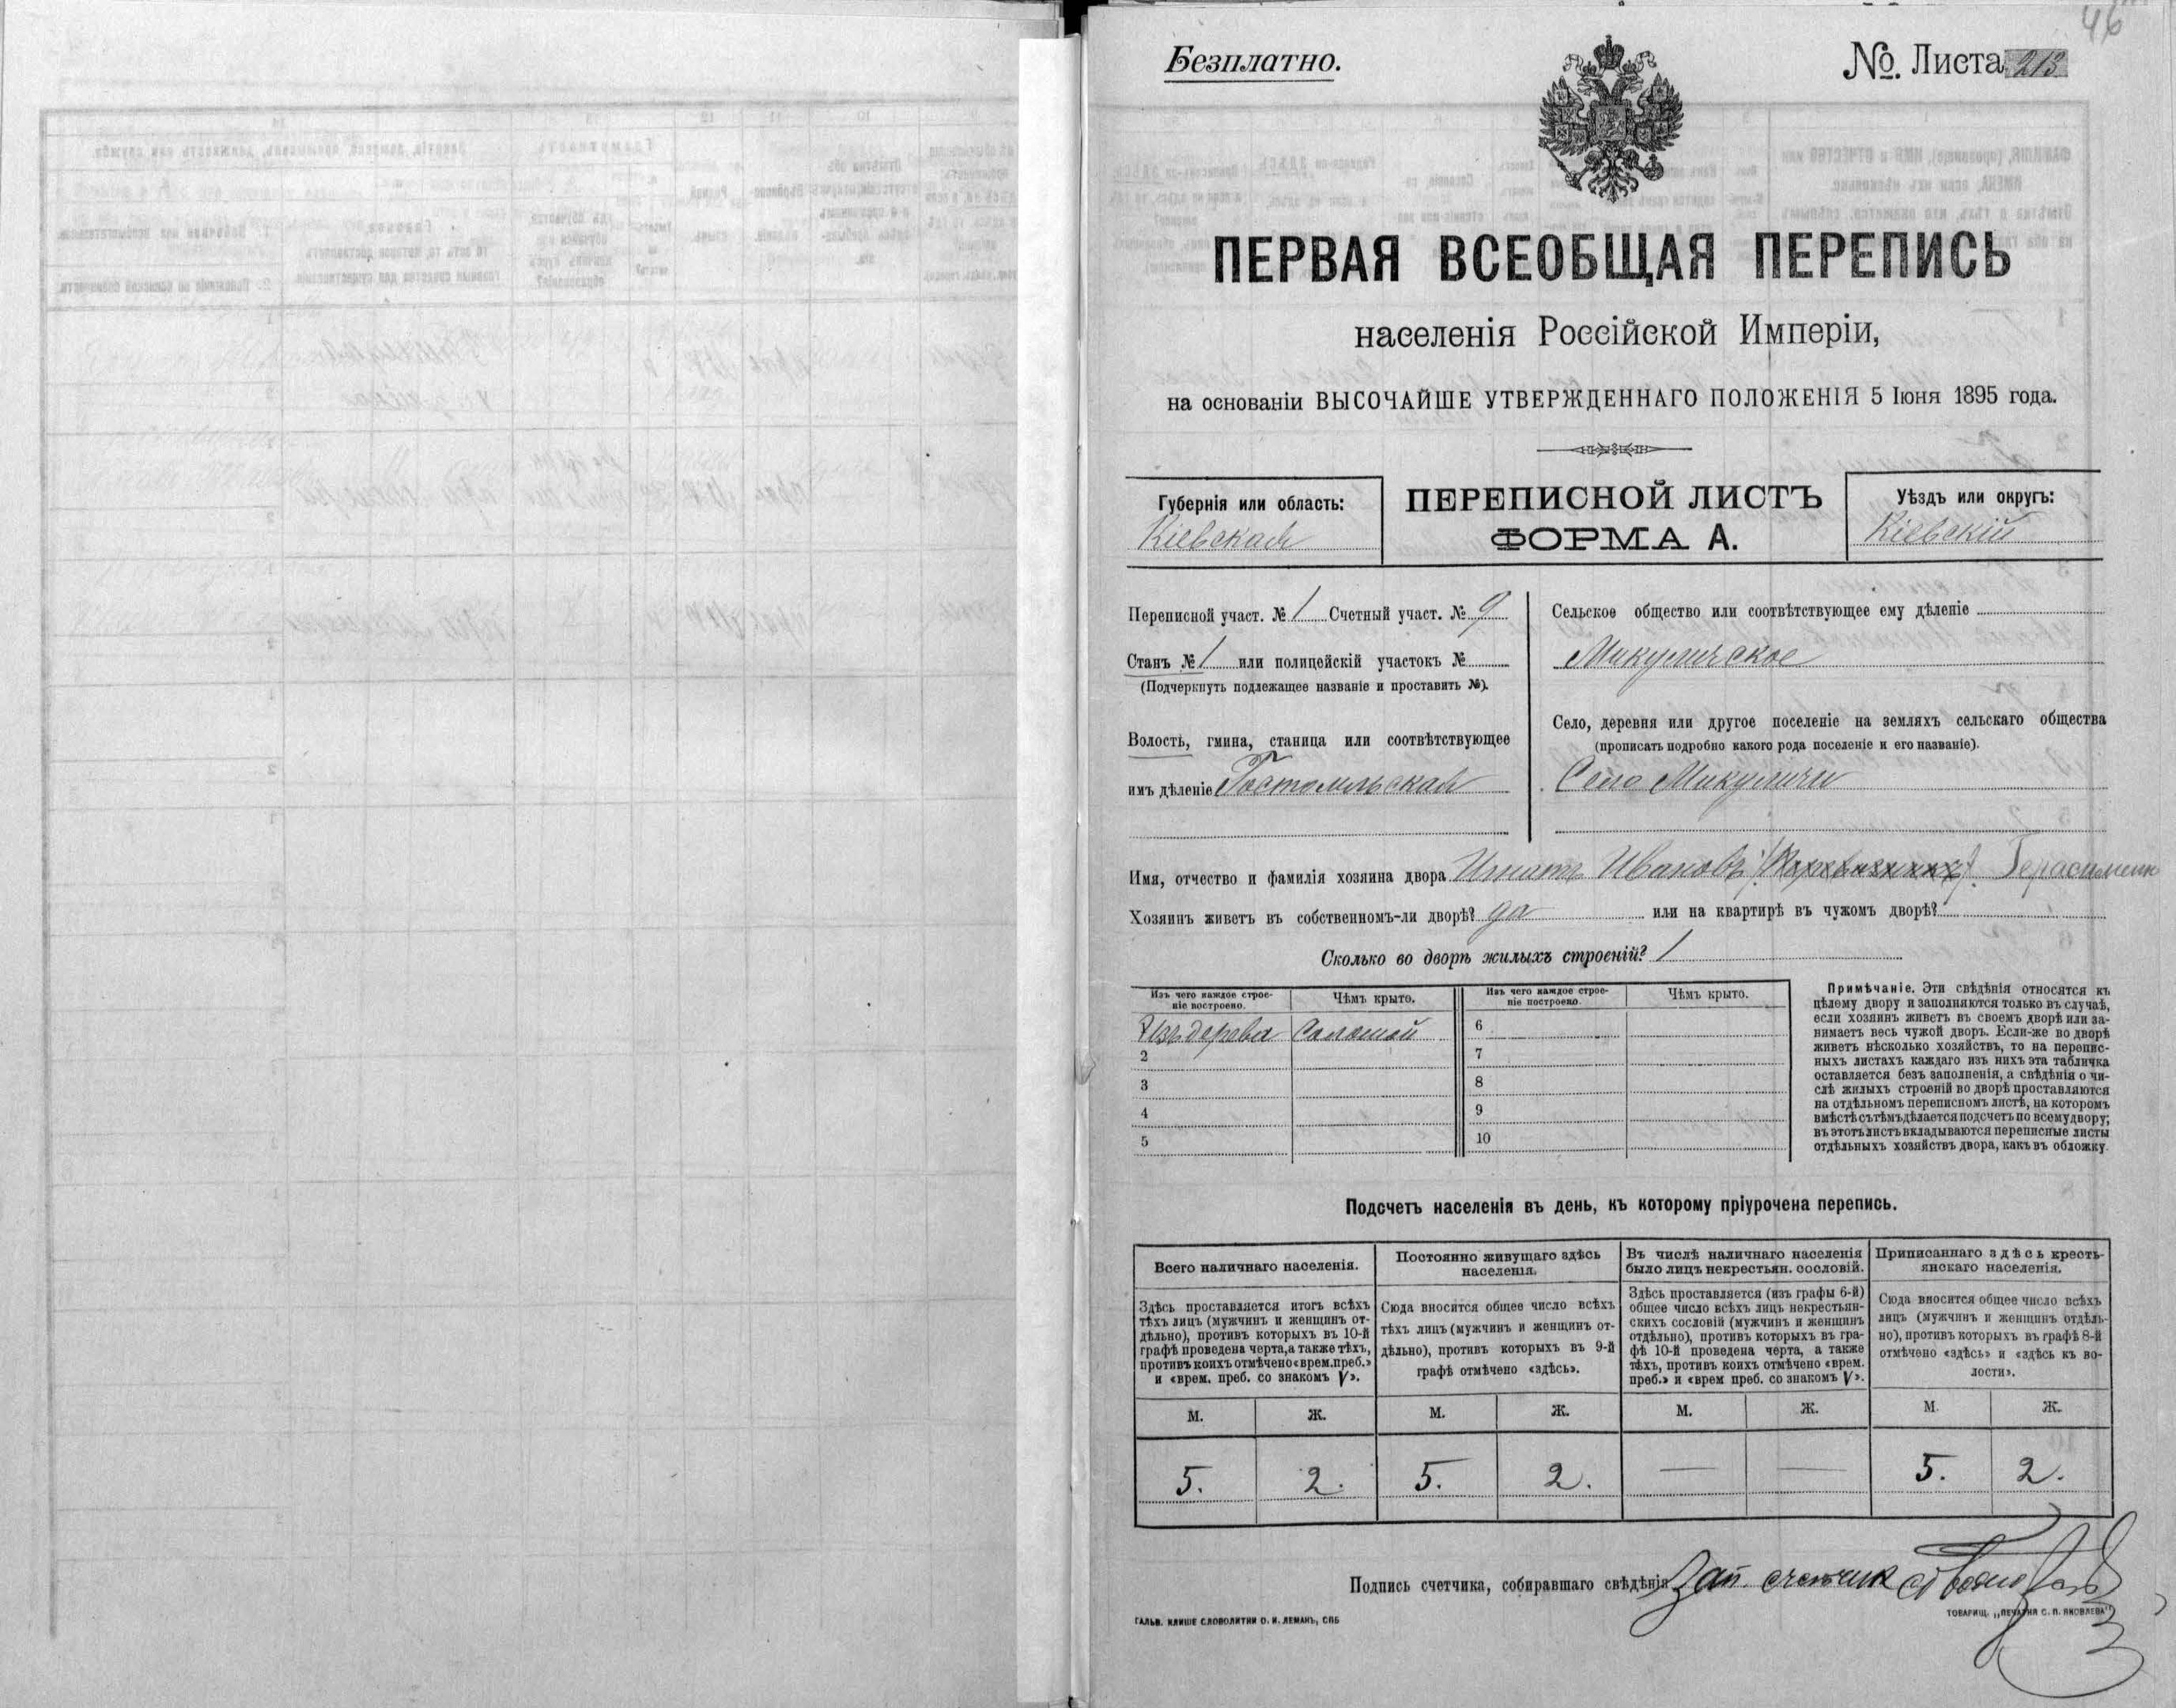 46
Безплатно.
№. Листа 213
ПЕРВАЯ ВСЕОБЩАЯ ПЕРЕПИСЬ
населенія Россійской Имперіи,
на основаніи ВЫСОЧАЙШЕ УТВЕРЖДЕННАГО ПОЛОЖЕНІЯ 5 Іюня 1895 года.
Губернія или область:
Кіевская
ПЕРЕПИСНОЙ ЛИСТЪ
ФОРМА А.
Уѣздъ или округъ:
Кіевскій
Переписной участ. № 1 Счетный участ. № 9
Станъ № 1 или полицейскій участокъ №
(Подчеркнуть подлежащее названіе и проставить №).
Волость, гмина, станица или соотвѣтствующее
имъ дѣленіе Гостомльская
Сельское общество или соотвѣтствующее ему дѣленіе
Микуличское
Село, деревня или другое поселеніе на земляхъ сельскаго общества
(прописать подробно какого рода поселеніе и его названіе).
Село Микуличи
Имя, отчество и фамилія хозяина двора Игнатъ Ивановъ Герасименко
Хозяинъ живетъ въ собственномъ-ли дворѣ? да или на квартирѣ въ чужомъ дворѣ?
Сколько во дворѣ жилыхъ строеній? 1
Изъ чего каждое строе-
ніе построено.
Чѣмъ крыто.
Изъ чего каждое строе-
ніе построено.
Чѣмъ крыто.
Изъ дерева Соломой 6
2 7
3 8
4 9
5 10
Примѣчаніе. Эти свѣдѣнія относятся къ
цѣлому двору и заполняются только въ случаѣ,
если хозяинъ живетъ въ своемъ дворѣ или за-
нимаетъ весь чужой дворъ. Если-же во дворѣ
живетъ нѣсколько хозяйствъ, то на перепис-
ныхъ листахъ каждаго изъ нихъ эта табличка
оставляется безъ заполненія, а свѣдѣнія о чи-
слѣ жилыхъ строеній во дворѣ проставляются
на отдѣльномъ переписномъ листѣ, на которомъ
вмѣстѣ съ тѣмъ дѣлается подсчетъ по всему двору;
въ этотъ листъ вкладываются переписные листы
отдѣльныхъ хозяйствъ двора, какъ въ обложку.
Подсчетъ населенія въ день, къ которому пріурочена перепись.
Всего наличнаго населенія.
Здѣсь проставляется итогъ всѣхъ
тѣхъ лицъ (мужчинъ и женщинъ от-
дѣльно), противъ которыхъ въ 10-й
графѣ проведена черта, а также тѣхъ,
противъ коихъ отмѣчено «врем. преб.»
и «врем. преб. со знакомъ V».
Постоянно живущаго здѣсь
населенія.
Сюда вносится общее число всѣхъ
тѣхъ лицъ (мужчинъ и женщинъ от-
дѣльно), противъ которыхъ въ 9-й
графѣ отмѣчено «здѣсь».
Въ числѣ наличнаго населенія
было лицъ некрестьян. сословій.
Здѣсь проставляется (изъ графы 6-й)
общее число всѣхъ лицъ некрестьян-
скихъ сословій (мужчинъ и женщинъ
отдѣльно), противъ которыхъ въ гра-
фѣ 10-й проведена черта, а также
тѣхъ, противъ коихъ отмѣчено «врем.
преб.» и «врем преб. со знакомъ V».
Приписаннаго здѣсь кресть-
янскаго населенія.
Сюда вносится общее число всѣхъ
лицъ (мужчинъ и женщинъ отдѣль-
но), противъ которыхъ въ графѣ 8-й
отмѣчено «здѣсь» и «здѣсь къ во-
лости».
М. Ж. М. Ж. М. Ж. М. Ж.
5. 2. 5. 2. — — 5. 2.
Подпись счетчика, собиравшаго свѣдѣнія Зап. счетчик
ГАЛЬВ. КЛИШЕ СЛОВОЛИТНИ О. И. ЛЕМАНЪ, СПБ
ТОВАРИЩ. „ПЕЧАТНЯ С. П. ЯКОВЛЕВА"